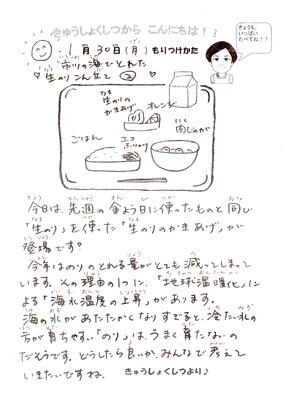 きゅうしょくしつから こんにちは!!
きょうも、
いっぱい
たべてね!!
1月30日(月) もりつけかた
市川の海でとれた
♥生のりこん立て②
生のりの
かきあげ
オレンジ
肉じゃが
ごはん
エコ
ふりかけ
今日は、先週の金よう日に使ったものと同じ
「生のり」を使った「生のりのかきあげ」が
登場です?
今年はのりのとれる量がとても減ってしまって
います。その理由の1つに、「地球温暖化」に
よる「海水温度の上昇」があります。
海の水があたたかくなりすぎると、冷たい水の
方が育ちやすい「のり」は、うまく育たないの
だそうです。どうしたら良いか、みんなで考えて
いきたいですね。 きゅうしょくしつより♪